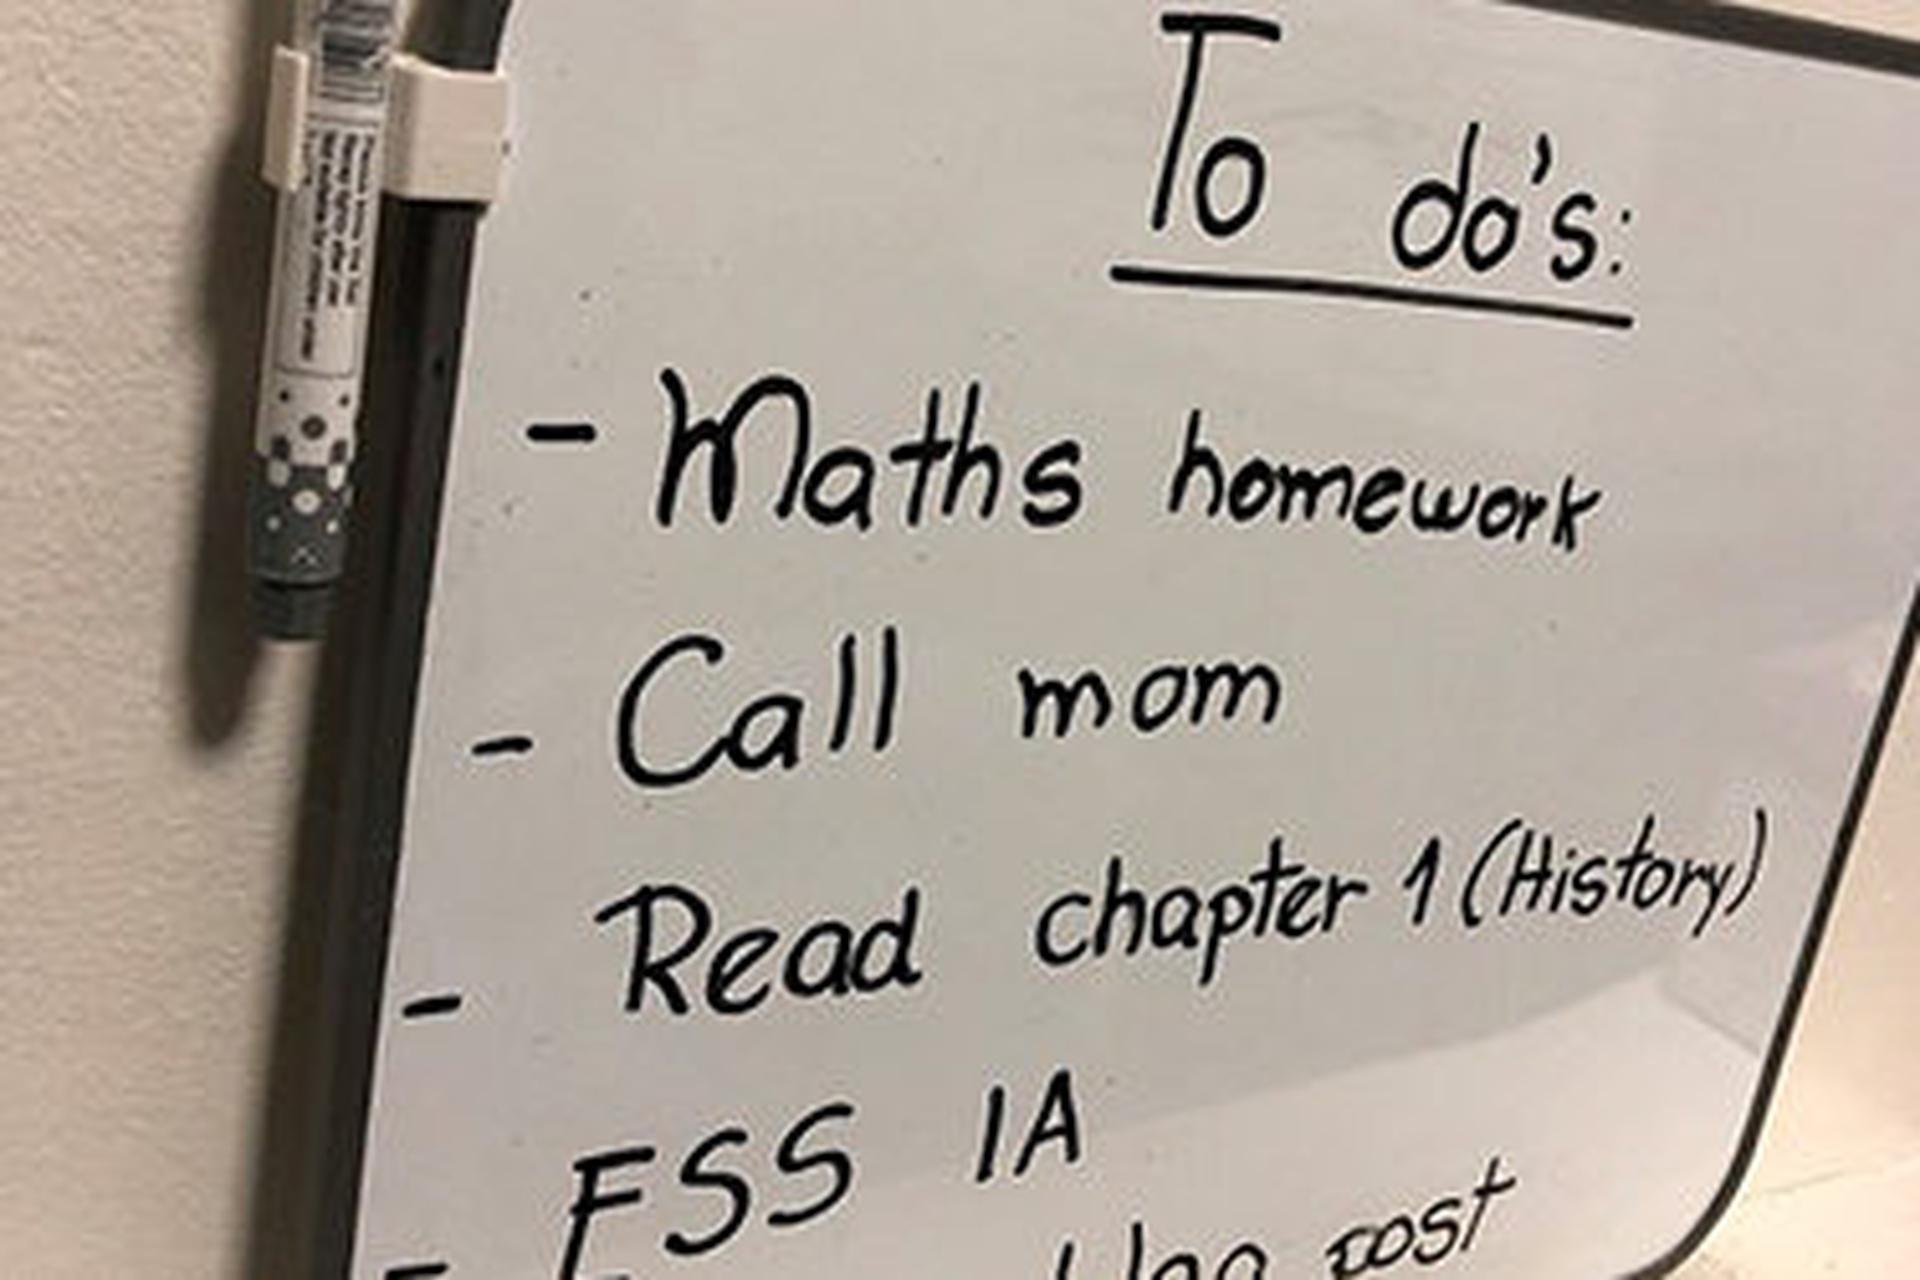 To do's:
- Maths homework
- Call mom
- Read chapter 1 (History)
- ESS IA